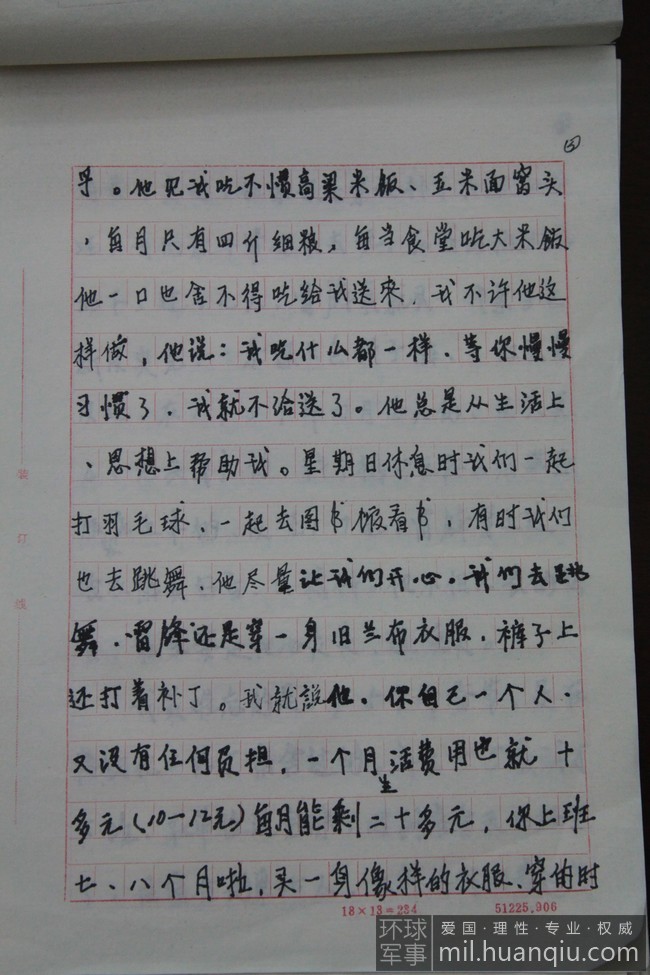 四
乎。他见我吃不惯高粱米饭、玉米面窝头
，每月只有四斤细粮，每当食堂吃大米饭
他一口也舍不得吃给我送来，我不许他这
样做，他说：我吃什么都一样．等你慢慢
习惯了．我就不给送了。他总是从生活上
、思想上帮助我。星期日休息时我们一起
打羽毛球．一起去图书馆看书，有时我们
也去跳舞．他尽量让我们开心。我们去跳
舞．雷锋还是穿一身旧兰布衣服．裤子上
还打着补丁。我就說他。你自己一个人．
又没有任何负担，一个月生活费用也就十
多元（10—12元）每月能剩二十多元，你上班
七、八个月啦，买一身像样的衣服、穿的时
装订线
18×13＝234
51225.906
环球军事
爱国·理性·专业·权威
mil.huanqiu.com